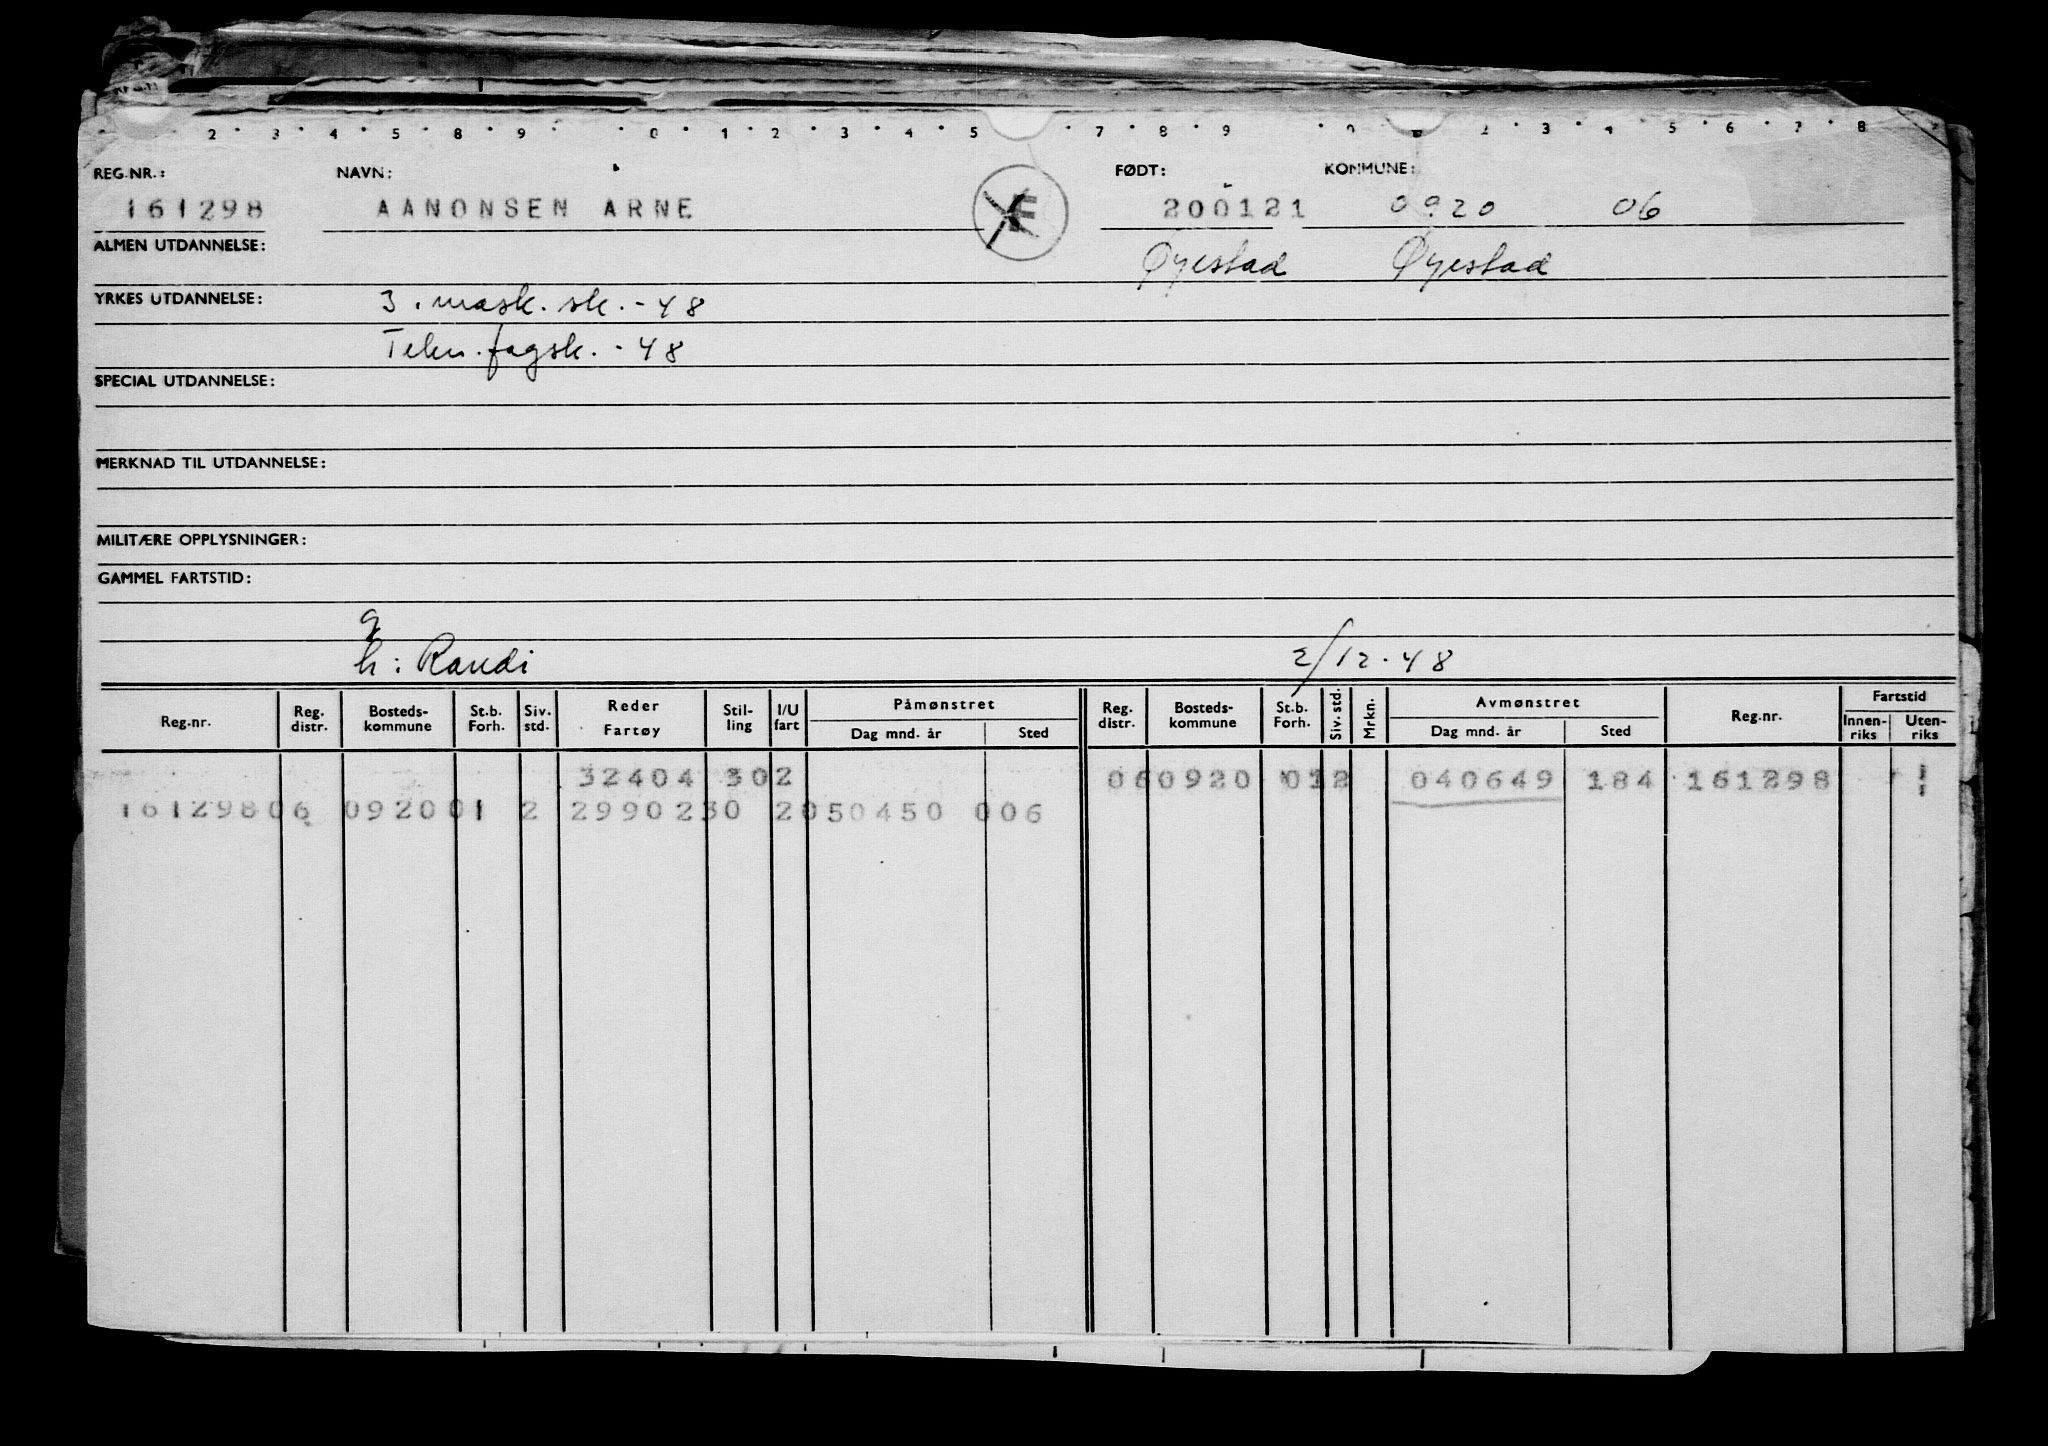 2 3 4 5 8 9 0 1 2 3 4 5 7 8 9 2 3 4 5 6 7 8
REG.NR.: NAVN: FØDT: KOMMUNE:
161298 AANONSEN ARNE 200121 0920 06
ALMEN UTDANNELSE: Øyestad Øyestad
YRKES UTDANNELSE: 3. mask. sk. - 48
Tekn. fagsk. - 48
SPECIAL UTDANNELSE:
MERKNAD TIL UTDANNELSE:
MILITÆRE OPPLYSNINGER:
GAMMEL FARTSTID:
g
h: Randi 2/12.48
Reg.nr. Reg. distr. Bosteds-kommune St.b. Forh. Siv. std. Reder Fartøy Stil-ling I/U fart Påmønstret Dag mnd. år Sted Reg. distr. Bosteds-kommune St.b. Forh. Siv. std. Mrkn. Avmønstret Dag mnd. år Sted Reg.nr. Fartstid Innen-riks Uten-riks
32404 302 060920 012 040649 184 161298
16129806 092001 2 2990230 2050450 006